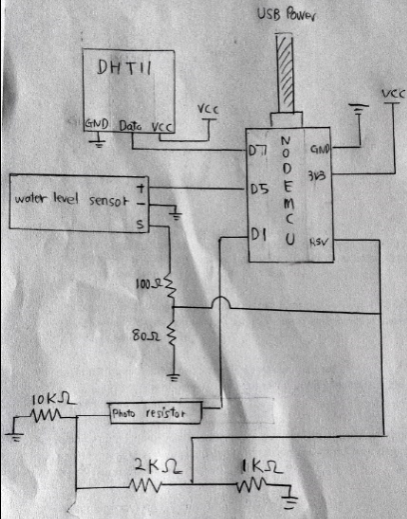 USB Power
DHT11
GND Data VCC
VCC
VCC
NODEMCU
D7
GND
3V3
D5
D1
RSV
water level sensor
+
-
S
100Ω
80Ω
10KΩ
Photo resistor
2KΩ
1KΩ